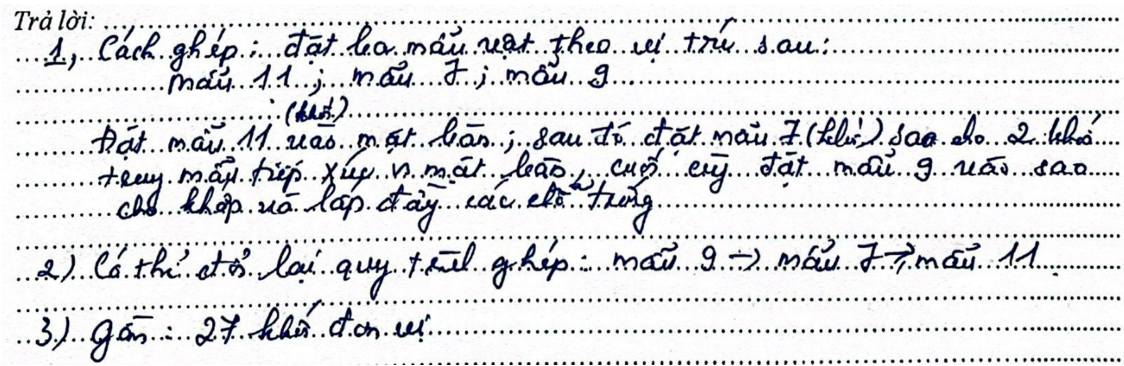 Trả lời:
1, Cách ghép: đặt ba mẩu vật theo vị trí sau:
mẩu 11; mẩu 7; mẩu 9
(khối)
Đặt mẩu 11 vào mặt bàn; sau đó đặt mẩu 7 (khối) sao cho 2 khối
trong mẩu tiếp xúc n mặt bàn, cuối cùng đặt mẩu 9 vào sao
cho khớp và lấp đầy các chỗ trống
2) Có thể đổi lại quy trình ghép: mẩu 9 → mẩu 7 → mẩu 11
3) gồm: 27 khối đơn vị